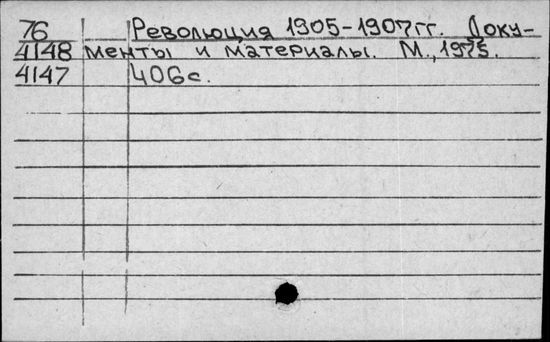 76 Революция 1905-1907гг. Доку-
4148 менты и материалы. М., 1975.
4147 406с.